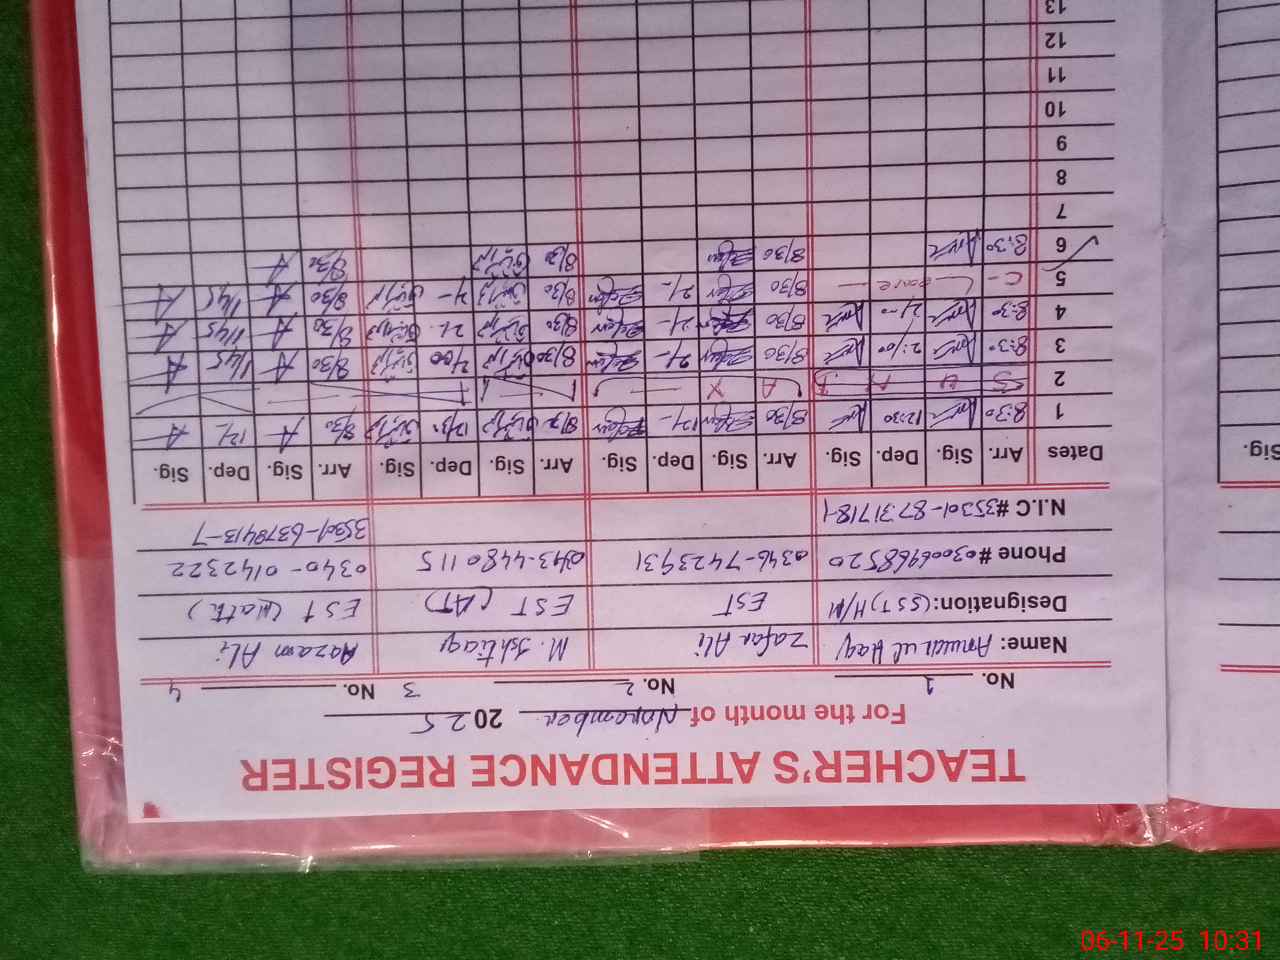 TEACHER'S ATTENDANCE REGISTER
For the month of November 2025
No. 1 No. 2 No. 3 No. 4
Name: Anwar ul Haq Zafar Ali M. Ishtiaq Aazam Ali
Designation: (SST) H/M EST EST (AT) EST (Math)
Phone # 03006968520 0346-7423931 0343-4480115 0340-0142322
N.I.C # 35301-8731718-1 35301-6378413-7
Dates Arr. Sig. Dep. Sig. Arr. Sig. Dep. Sig. Arr. Sig. Dep. Sig. Arr. Sig. Dep. Sig.
1 8:30 12:30 8/30 12/- 8/30 12/30 8/30 A 12/- A
2 S U N D A Y
3 8:30 2:00 8/30 2/- 8/30 2/00 8/30 A 1/45 A
4 8:30 2:00 8/30 2/- 8/30 2/- 8/30 A 1/45 A
5 C - Leave - 8/30 2/- 8/30 2/- 8/30 A 1/45 A
6 8:30 8/30 8/30 8/30 A
7
8
9
10
11
12
13
Sig.
06-11-25 10:31